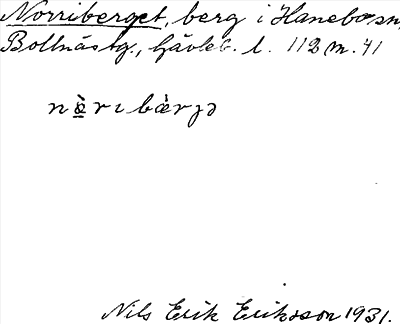 Norriberget, berg i Hanebo sn,
Bollnästg., Gävleb. l. 112 m. 41
nò̱rɩbæ̀rjə
Nils Erik Eriksson 1931.